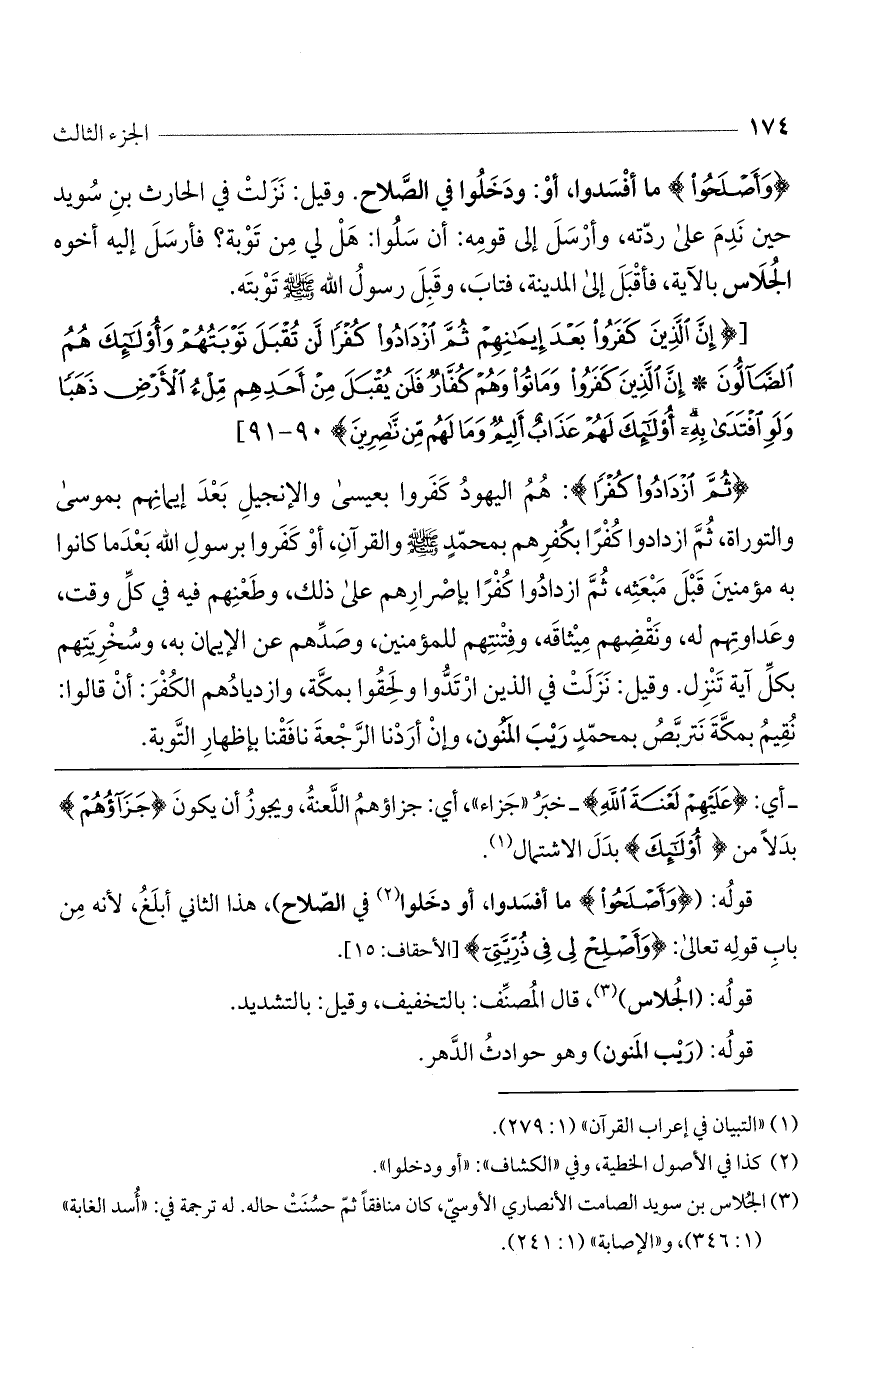 ١٧٤ الجزء الثالث
﴿وَأَصْلَحُوا﴾ ما أفْسَدوا، أوْ: ودَخَلُوا في الصَّلاح. وقيل: نَزَلتْ في الحارث بنِ سُويد
حين نَدِمَ على ردّته، وأرْسَلَ إلى قومِه: أن سَلُوا: هَلْ لي مِن تَوْبة؟ فأرسَلَ إليه أخوه
الجُلَاس بالآية، فأقْبَلَ إلى المدينة، فتابَ، وقَبِلَ رسولُ الله ﷺ تَوْبتَه.
[﴿إِنَّ ٱلَّذِينَ كَفَرُوا۟ بَعْدَ إِيمَٰنِهِمْ ثُمَّ ٱزْدَادُوا۟ كُفْرًا لَّن تُقْبَلَ تَوْبَتُهُمْ وَأُو۟لَٰٓئِكَ هُمُ
ٱلضَّآلُّونَ * إِنَّ ٱلَّذِينَ كَفَرُوا۟ وَمَاتُوا۟ وَهُمْ كُفَّارٌ فَلَن يُقْبَلَ مِنْ أَحَدِهِم مِّلْءُ ٱلْأَرْضِ ذَهَبًا
وَلَوِ ٱفْتَدَىٰ بِهِۦٓ أُو۟لَٰٓئِكَ لَهُمْ عَذَابٌ أَلِيمٌ وَمَا لَهُم مِّن نَّٰصِرِينَ﴾ ٩٠-٩١]
﴿ثُمَّ ٱزْدَادُوا۟ كُفْرًا﴾: هُمُ اليهودُ كَفَروا بعيسى والإنجيلِ بَعْدَ إيمانِهم بموسى
والتوراة، ثُمَّ ازدادوا كُفْرًا بكُفرِهم بمحمّدٍ ﷺ والقرآنِ، أوْ كَفَروا برسولِ الله بَعْدَما كانوا
به مؤمنينَ قَبْلَ مَبْعَثِه، ثُمَّ ازدادُوا كُفْرًا بإصْرارِهم على ذلك، وطَعْنِهم فيه في كلِّ وقت،
وعَداوتِهم له، ونَقْضِهم مِيْثاقَه، وفِتْنتِهم للمؤمنين، وصَدِّهم عن الإيمان به، وسُخْرِيَتِهم
بكلِّ آية تَنْزِل. وقيل: نَزَلَتْ في الذين ارْتَدُّوا ولَحِقُوا بمكَّة، وازديادُهم الكُفْرَ: أنْ قالوا:
نُقِيمُ بمكَّةَ نَتربَّصُ بمحمّدٍ رَيْبَ المَنُون، وإنْ أرَدْنا الرَّجْعةَ نافَقْنا بإظهارِ التَّوبة.
ـ أي: ﴿عَلَيْهِمْ لَعْنَةَ ٱللَّهِ﴾ ـ خبَرُ «جَزاء»، أي: جزاؤهمُ اللَّعنةُ، ويجوزُ أن يكونَ ﴿جَزَآؤُهُمْ﴾
بدَلاً من ﴿أُو۟لَٰٓئِكَ﴾ بدَلَ الاشتمال(١).
قولُه: (﴿وَأَصْلَحُوا۟﴾ ما أفسَدوا، أو دخَلوا(٢) في الصّلاح)، هذا الثاني أبلَغُ، لأنه مِن
بابِ قولِه تعالى: ﴿وَأَصْلِحْ لِى فِى ذُرِّيَّتِىٓ﴾ [الأحقاف: ١٥].
قولُه: (الجُلاس)(٣)، قال المُصنِّف: بالتخفيف، وقيل: بالتشديد.
قولُه: (رَيْب المَنون) وهو حوادثُ الدَّهر.
(١) «التبيان في إعراب القرآن» (١: ٢٧٩).
(٢) كذا في الأصول الخطية، وفي «الكشاف»: «أو ودخلوا».
(٣) الجُلاس بن سويد الصامت الأنصاري الأوسيّ، كان منافقاً ثمّ حسُنَتْ حاله. له ترجمة في: «أُسد الغابة»
(١: ٣٤٦)، و«الإصابة» (١: ٢٤١).